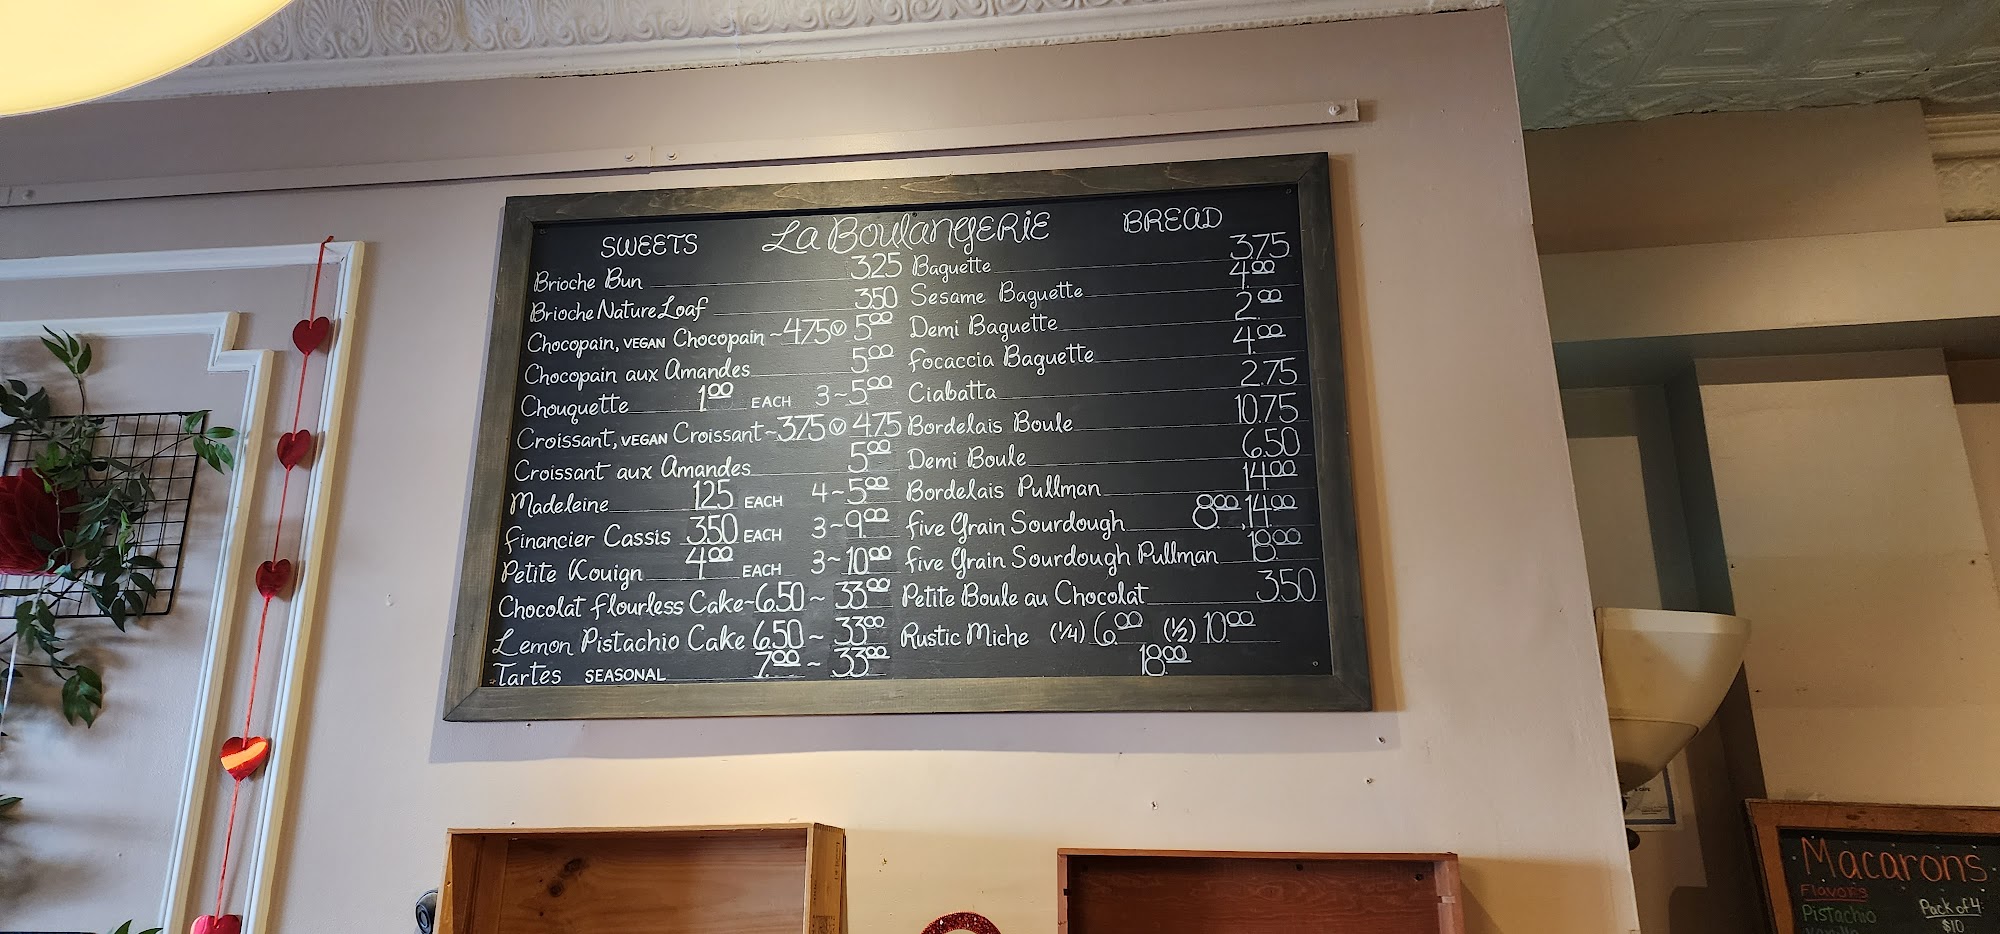 La Boulangerie
SWEETS
Brioche Bun 325
Brioche Nature Loaf 350
Chocopain, VEGAN Chocopain ~ 475 Ⓥ 5.00
Chocopain aux Amandes 5.00
Chouquette 1.00 EACH 3~5.00
Croissant, VEGAN Croissant ~ 375 Ⓥ 475
Croissant aux Amandes 5.00
Madeleine 125 EACH 4~5.00
Financier Cassis 350 EACH 3~9.00
Petite Kouign 4.00 EACH 3~10.00
Chocolat Flourless Cake ~ 6.50 ~ 33.00
Lemon Pistachio Cake 6.50 ~ 33.00
Tartes SEASONAL 7.00 ~ 33.00
BREAD
Baguette 3.75
Sesame Baguette 4.00
Demi Baguette 2.00
Focaccia Baguette 4.00
Ciabatta 2.75
Bordelais Boule 10.75
Demi Boule 6.50
Bordelais Pullman 14.00
Five Grain Sourdough 8.00, 14.00
Five Grain Sourdough Pullman 18.00
Petite Boule au Chocolat 3.50
Rustic Miche (1/4) 6.00 (1/2) 10.00
18.00
Macarons
Flavors
Pistachio
Pack of 4
$10